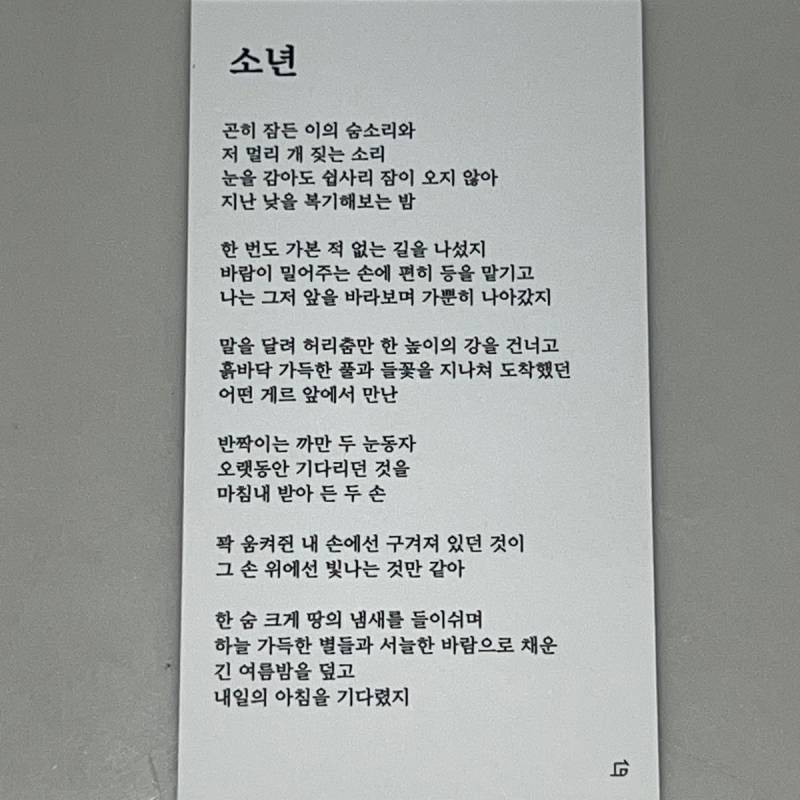 소년
곤히 잠든 이의 숨소리와
저 멀리 개 짖는 소리
눈을 감아도 쉽사리 잠이 오지 않아
지난 낮을 복기해보는 밤
한 번도 가본 적 없는 길을 나섰지
바람이 밀어주는 손에 편히 등을 맡기고
나는 그저 앞을 바라보며 가뿐히 나아갔지
말을 달려 허리춤만 한 높이의 강을 건너고
흙바닥 가득한 풀과 들꽃을 지나쳐 도착했던
어떤 게르 앞에서 만난
반짝이는 까만 두 눈동자
오랫동안 기다리던 것을
마침내 받아 든 두 손
꽉 움켜쥔 내 손에선 구겨져 있던 것이
그 손 위에선 빛나는 것만 같아
한 숨 크게 땅의 냄새를 들이쉬며
하늘 가득한 별들과 서늘한 바람으로 채운
긴 여름밤을 덮고
내일의 아침을 기다렸지